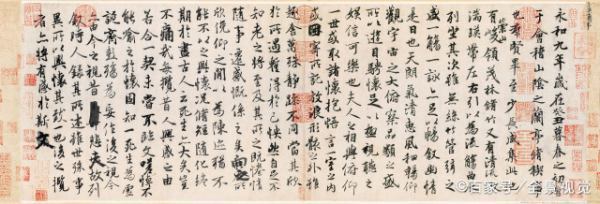 永和九年歲在癸丑暮春之初會
于會稽山陰之蘭亭脩稧事
也群賢畢至少長咸集此地
有崇山峻領茂林脩竹又有清流激
湍暎帶左右引以為流觴曲水
列坐其次雖無絲竹管弦之
盛一觴一詠亦足以暢敘幽情
是日也天朗氣清惠風和暢仰
觀宇宙之大俯察品類之盛
所以遊目騁懷足以極視聽之
娛信可樂也夫人之相與俯仰
一世或取諸懷抱悟言一室之內
或因寄所託放浪形骸之外雖
趣舍萬殊靜躁不同當其欣
於所遇蹔得於己怏然自足不
知老之將至及其所之既惓情
隨事遷感慨係之矣向之所
欣俛仰之閒以為陳迹猶不
能不以之興懷況脩短隨化終
期於盡古人云死生亦大矣豈
不痛哉每攬昔人興感之由
若合一契未嘗不臨文嗟悼不
能喻之於懷固知一死生為虛
誕齊彭殤為妄作後之視今
亦由今之視昔悲夫故列
敘時人錄其所述雖世殊事
異所以興懷其致一也後之攬
者亦將有感於斯文
百家号/全景视觉